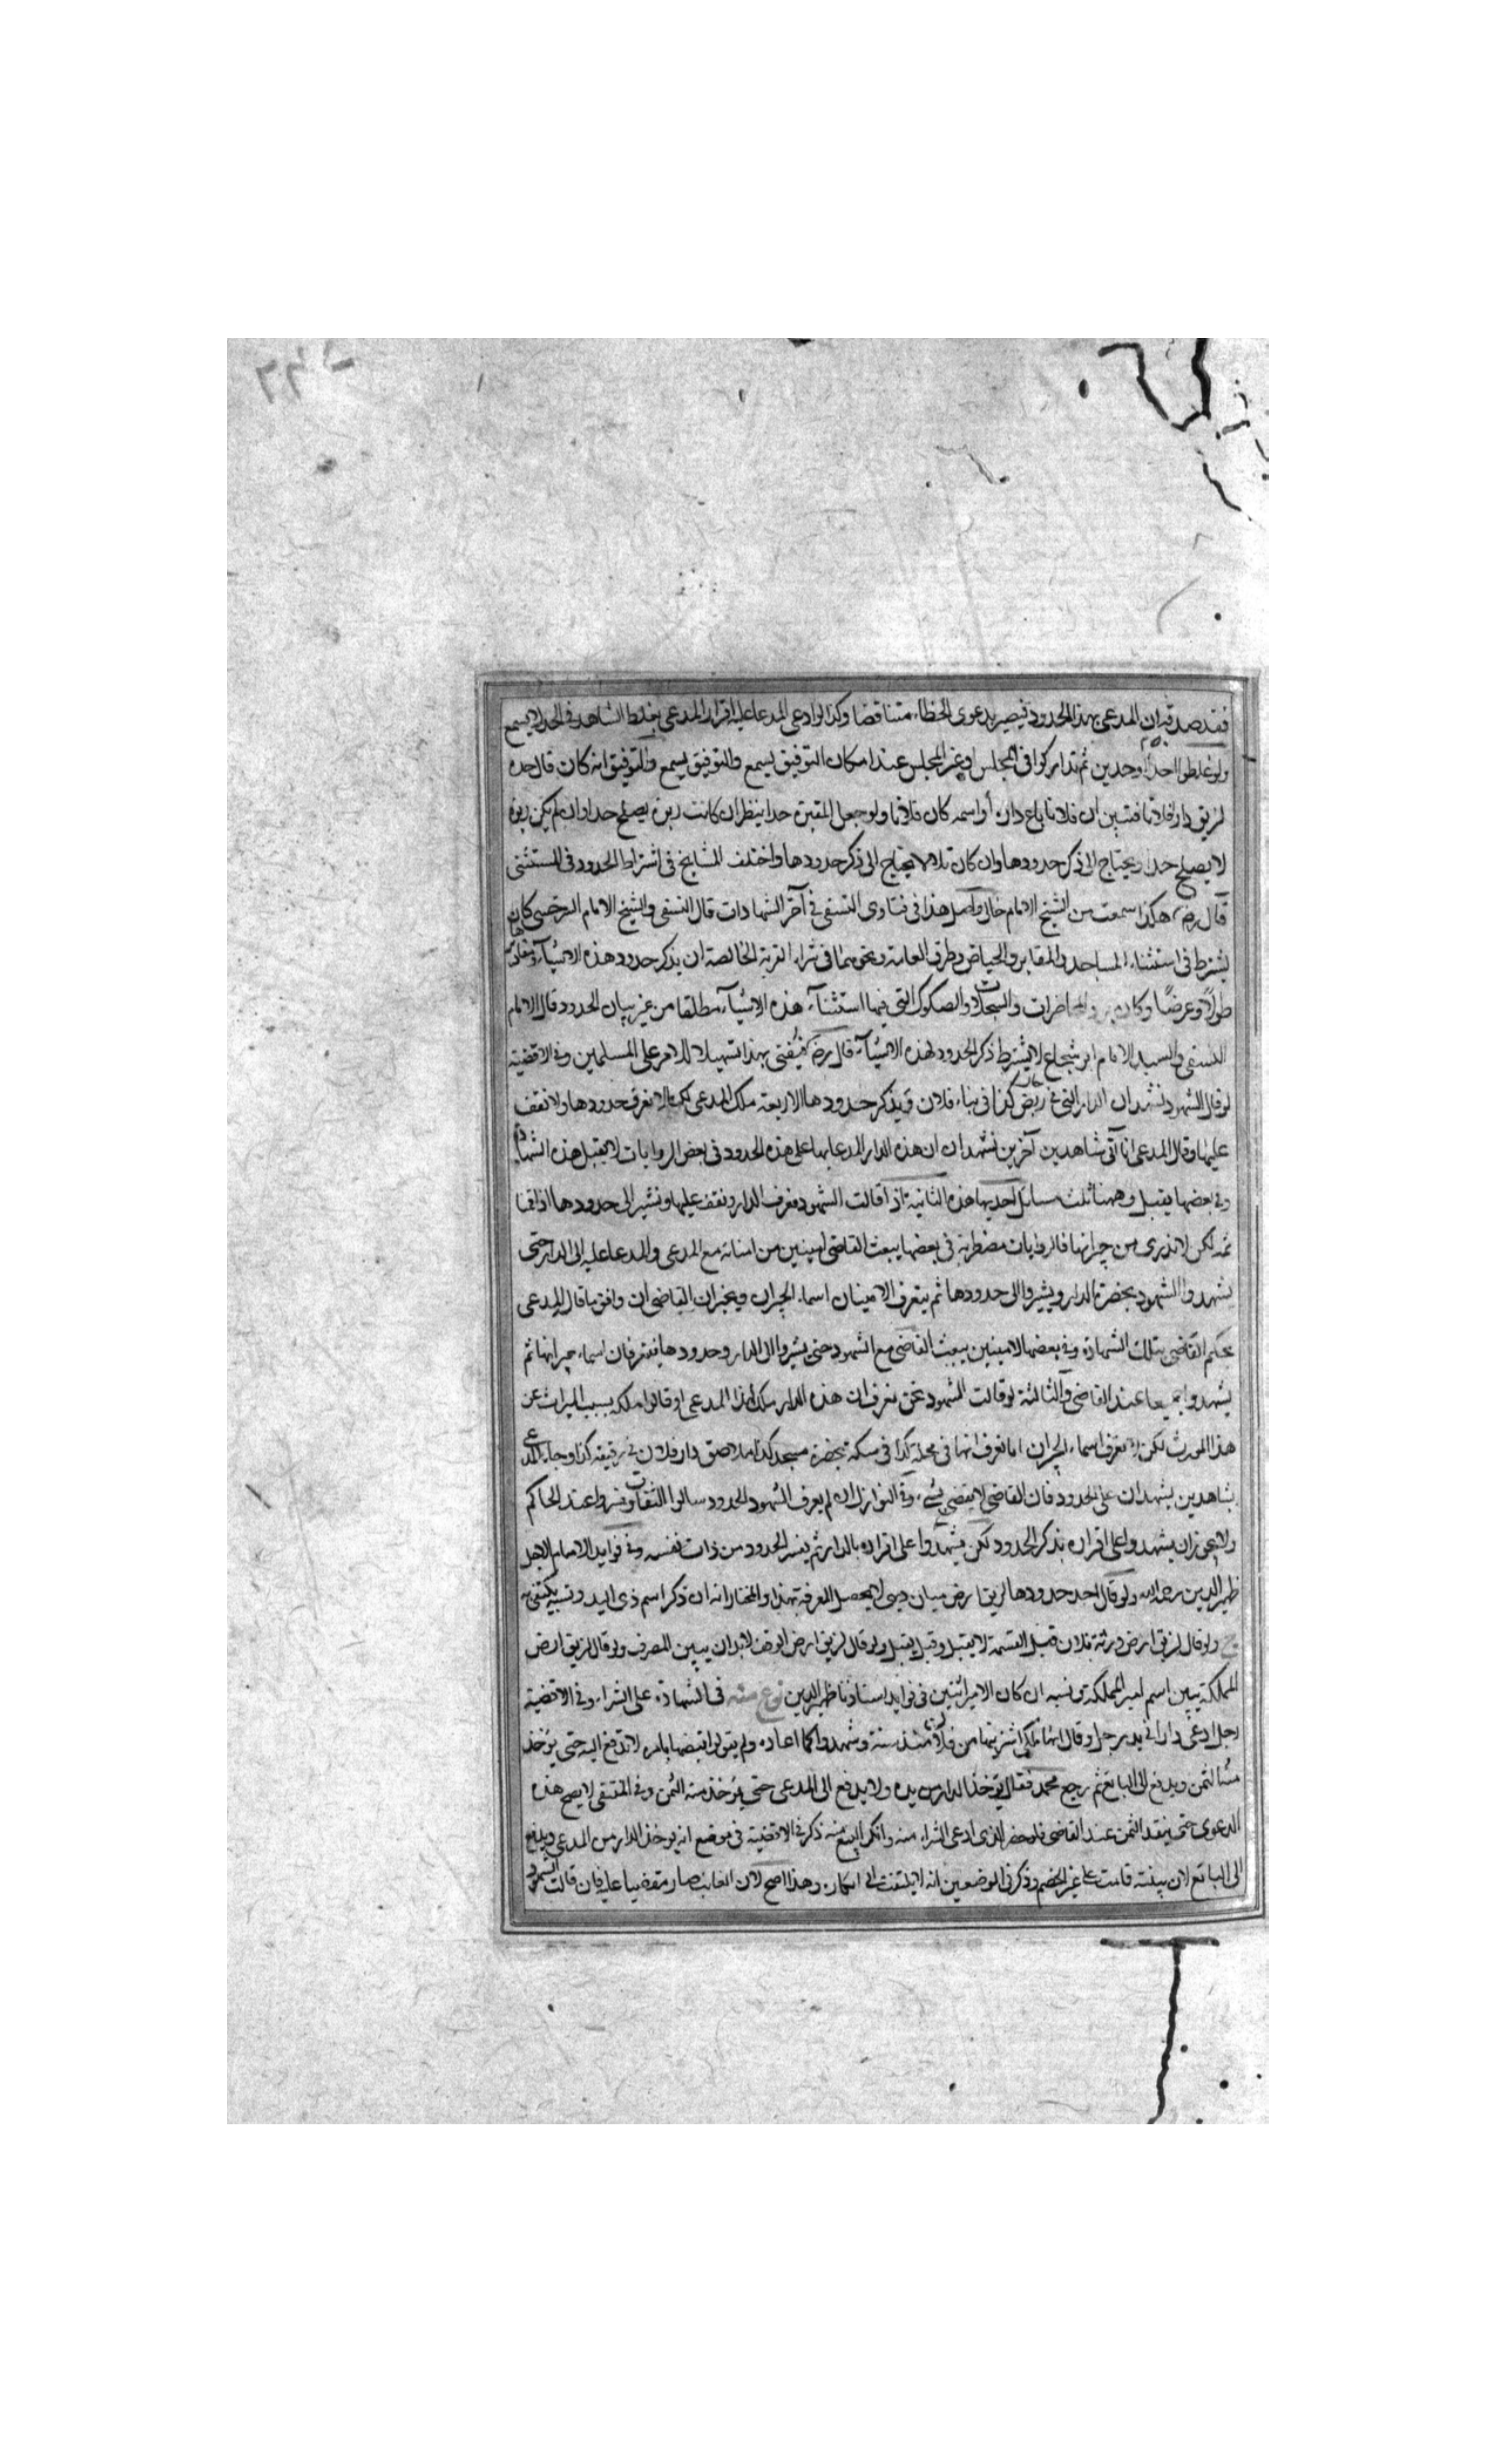 فقد صدقه ان المدعى بهذا الحدود فيصير بدعوى الخطاء متناقضا وكذا لو ادعى المدعا عليه اقرار المدعى بغلط الشاهد فى الحد لا يسمع
ولو غلطوا احدا وحدين ثم تداركوا فى المجلس او غير المجلس عند امكان التوفيق يسمع والتوفيق يسمع والتوفيق انه كان قال حده
لزيق دار فلان فتبين ان فلانا باع داره أو اسمه كان فلانا ولو جعل المقبرة حدا ينظر ان كانت ربوة يصلح حدا وان لم يكن ربوة
لا يصلح حدا ويحتاج الى ذكر حدودها وان كان تلا لا يحتاج الى ذكر حدودها واختلف المشايخ فى اشتراط الحدود فى المستثنى
قال رضه هكذا سمعت من الشيخ الامام خالى واصل هذا فى فتاوى النسفى فى آخر الشهادات قال النسفى والشيخ الامام السرخسى كان
يشترط فى استثناء المساجد والمقابر والحياض وطرق العامة ونحوهما فى شراء القرية الخالصة ان يذكر حدود هذه الاشياء ومقاديرها
طولًا وعرضًا وكان يرد المحاضرات والسجلات والصكوك التى فيها استثناء هذه الاشياء مطلقا من غير بيان الحدود قال الامام
النسفى والسيد الامام ابو شجاع لا يشترط ذكر الحدود لهذه الاشياء قال رضه فيفتى بهذا تسهيلا للامر على المسلمين وفى الاقضية
لو قال الشهود نشهد ان الدار التى فى ربض كذا فى بناء فلان ويذكر حدودها الاربعة ملك المدعى لكن لا نعرف حدودها ولا نقف
عليها وقال المدعى انا آتى شاهدين آخرين نشهد ان هذه الدار المدعا بها على هذه الحدود فى بعض الروايات لا يقبل هذه الشهادة
وفى بعضها يقبل وههنا ثلث مسايل احديها هذه الثانية اذا قالت الشهود نعرف الدار ونقف عليها ونشير الى حدودها اذا قمنا
ثمه لكن لا ندرى من جيرانها فالروايات مضطربة فى بعضها يبعث القاضى امينين من امنائه مع المدعى والمدعا عليه الى الدار حتى
يشهدوا الشهود بحضرة الدار ويشيروا الى حدودها ثم يتعرف الامينان اسماء الجيران ويخبران القاضى ان وافق ما قال المدعى
يحكم القاضى بتلك الشهادة وفى بعضها الامينين يبعث القاضى مع الشهود حتى يشيروا الى الدار وحدودها فيتعرفان اسماء جيرانها ثم
يشهدوا جميعا عند القاضى والثالثة لو قالت الشهود نحن نعرف ان هذه الدار ملك لهذا المدعى او قالوا ملكه بسبب الميراث عن
هذا المورث لكن لا نعرف اسماء الجيران اما نعرف انها فى محلة كذا فى سكة بحضرة مسجد كذا ملاصق دار فلان فى زقيقة كذا وجاء المدعى
بشاهدين يشهدان على الحدود فان القاضى لا يقضى بشىء وفى النوازل ان لم يعرف الشهود الحدود سالوا الثقات وفسروا عند الحاكم
ولا يجوز ان يشهدوا على اقراره بذكر الحدود لكن يشهدوا على اقراره بالدار ثم يفسر الحدود من ذات نفسه وفى فوايد الامام الاجل
ظهير الدين رحمه الله ولو قال احد حدودها لزيق ارض ميان دهى لا يحصل المعرفة بهذا والمختار انه ان ذكر اسم ذى اليد ونسبه يكتفى به
ولو قال لزيق ارض ورثة فلان قبل القسمة لا يقبل وقيل يقبل ولو قال لزيق ارض الوقف لا بد ان يبين المصرف ولو قال لزيق ارض
المملكة يبين اسم امير المملكة ونسبه ان كان الامير اثنين فى فوايد استاذنا ظهير الدين نوع منه فى الشهادة على الشراء وفى الاقضية
رجل ادعى دارا فى يد رجل وقال انها ملكى اشتريتها من فلان منذ سنة وشهدوا كما ادعاه ولم يقولوا قبضها بامره لا تدفع اليه حتى يؤخذ
منه الثمن ويدفع الى البائع ثم رجع محمد فقال يؤخذ الدار من يده ولا يدفع الى المدعى حتى يؤخذ منه الثمن وفى المنتقى لا يصح هذه
الدعوى حتى ينقد الثمن عند القاضى فلو حضر الذى ادعى الشراء منه وانكر البيع منه ذكر فى الاقضية فى موضع انه يؤخذ الدار من المدعى ويدفع
الى البائع لان بينته قامت على غير الخصم وذكر فى الموضعين انه لا يلتفت الى انكاره وهذا اصح لان الغائب صار مقضيا عليه فان قالت الشهود